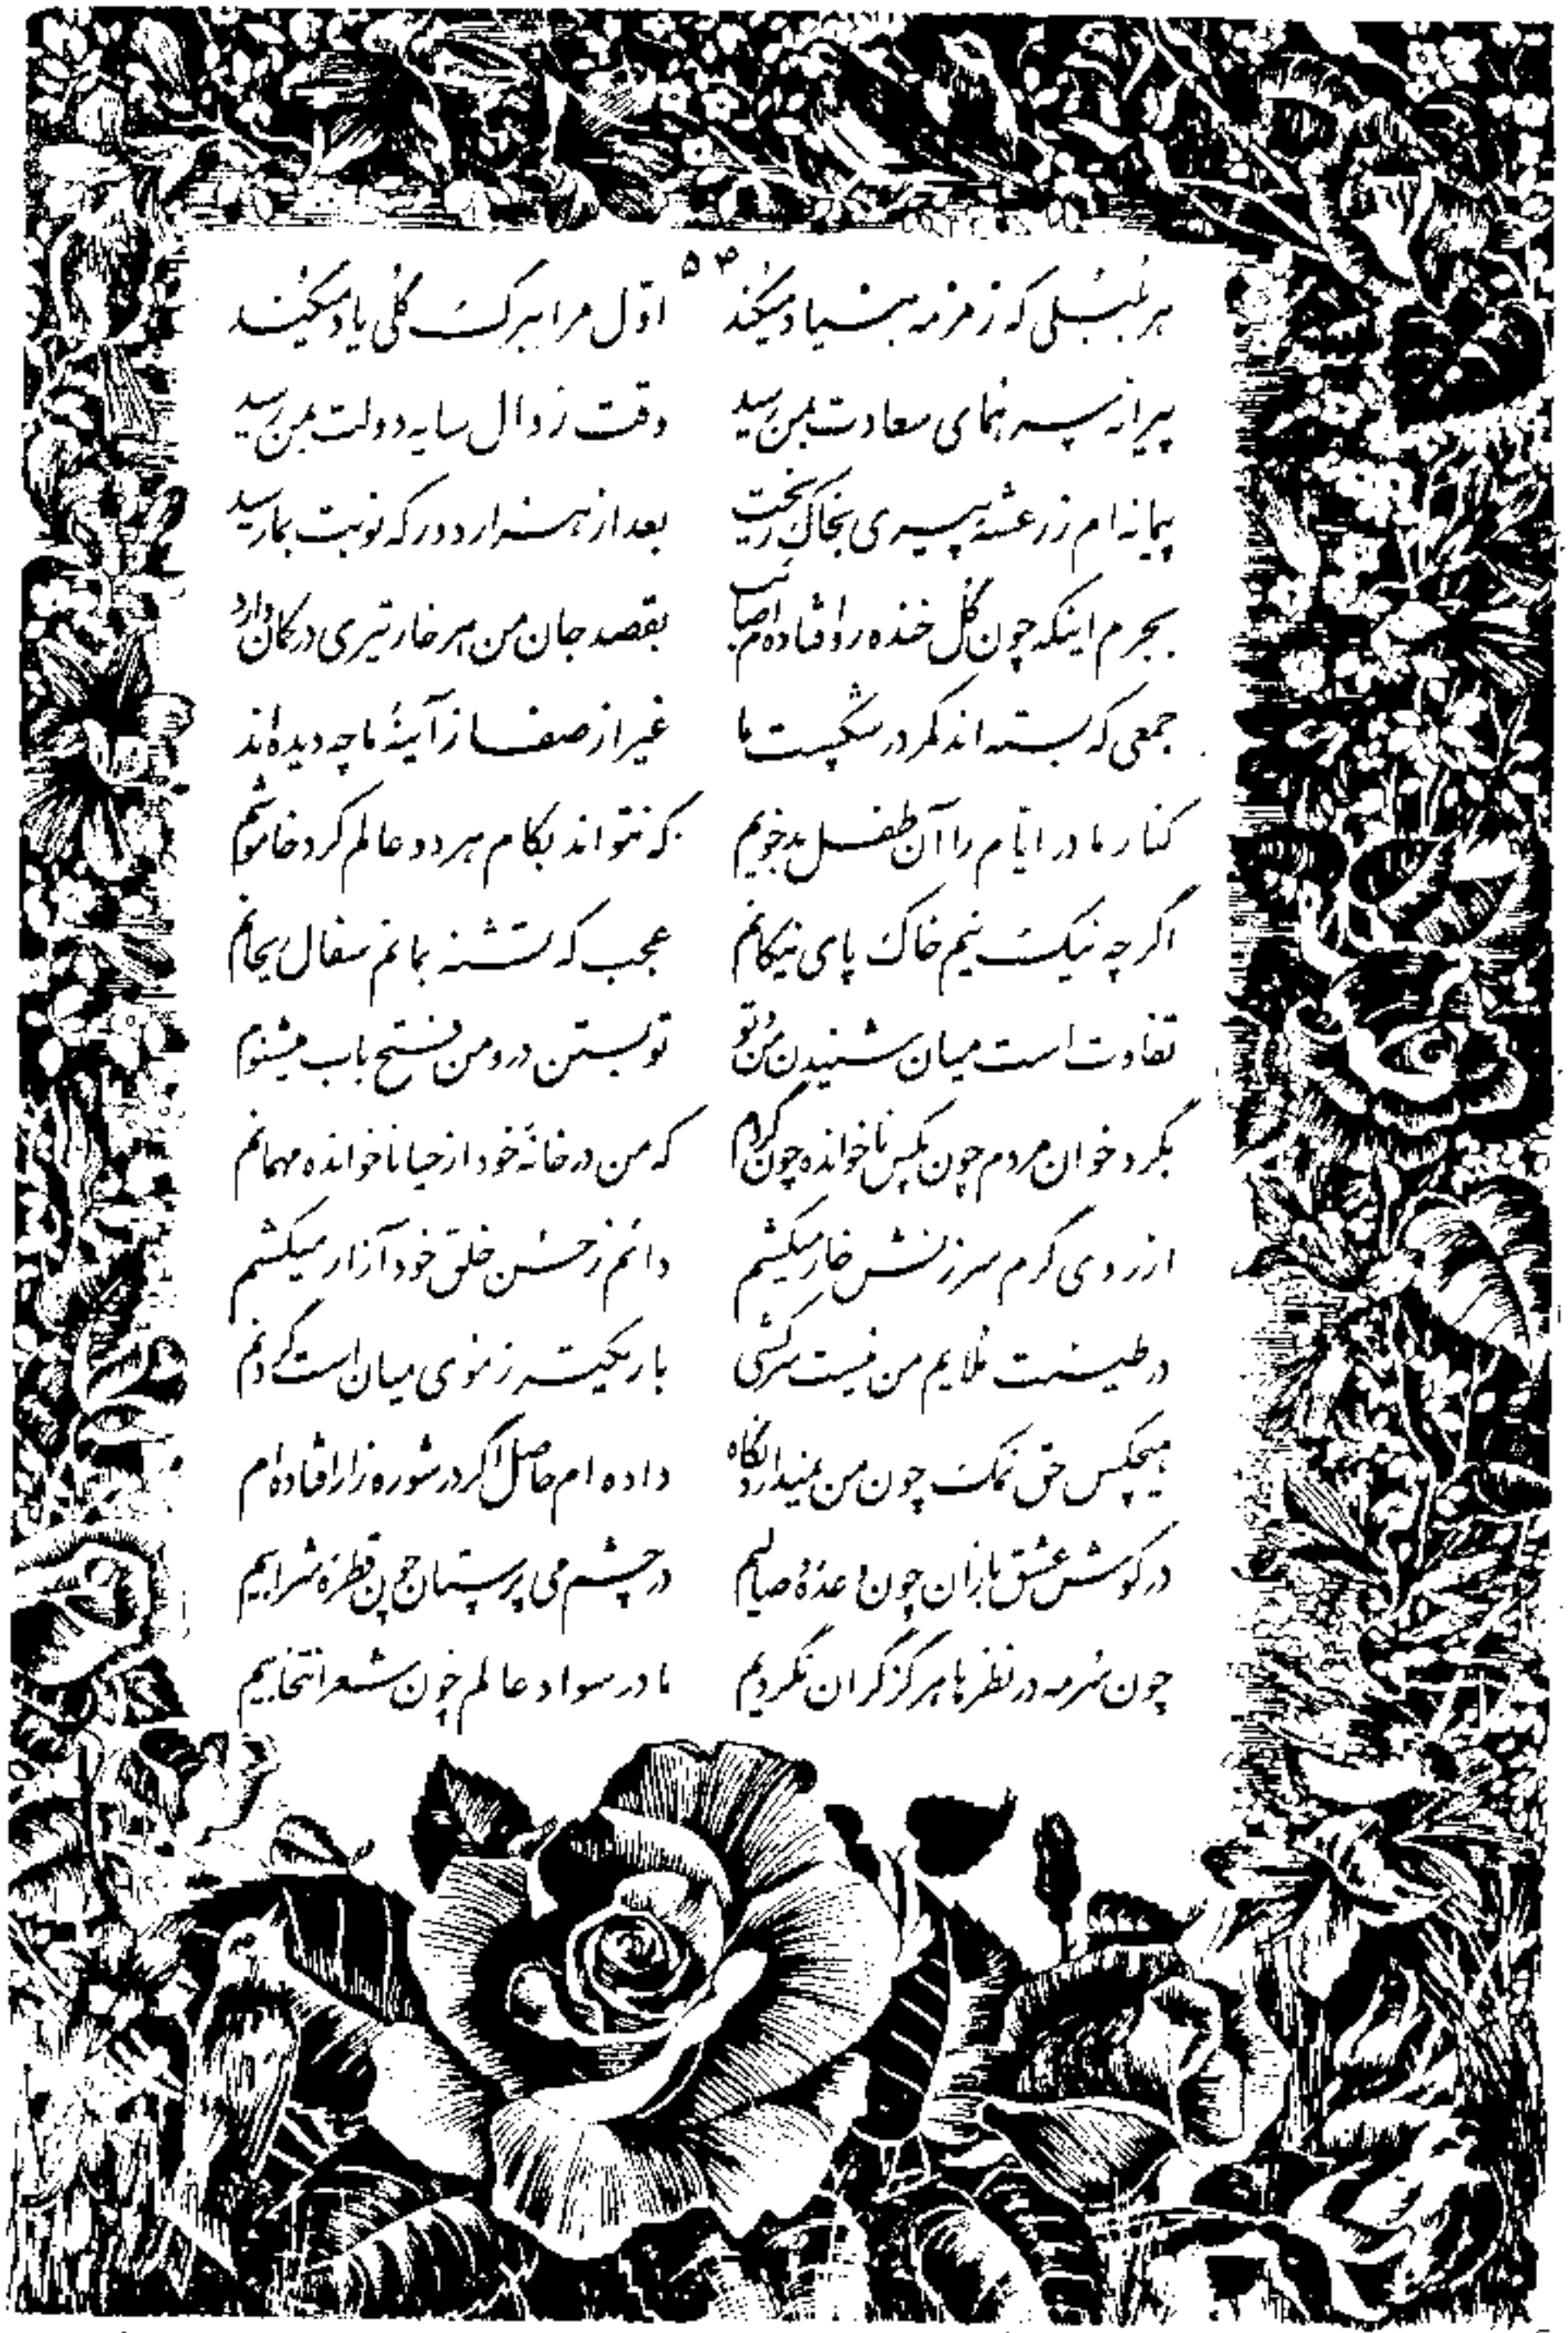 ۵۳
هر بلبلی که زمزمه بنیاد میکند اوّل مرا ببرگ گلی یاد میکند
پیرانه سر همای سعادت بمن رسید وقت زوال سایه دولت بمن رسید
پیمانه ام ز رعشهٔ پیری بخاک ریخت بعد از هزار دور که نوبت بما رسید
بجرم اینکه چون گل خنده رو افتاده ام صائب بقصد جان من هر خار تیری در کمان دارد
جمعی که بسته اند کمر در شکست ما غیر از صفا ز آینهٔ ما چه دیده اند
کنار مادر ایّام را آن طفل بدخویم که نتواند بکام هر دو عالم کرد خاموشم
اگر چه نیک نیم خاک پای نیکانم عجب که تشنه بمانم سفال ریحانم
تفاوت است میان شنیدن من و تو تو بستن در و من فتح باب میشنوم
بگرد خوان مردم چون مگس ناخوانده چون گردم که من در خانهٔ خود از حیا ناخوانده مهمانم
از روی گرم سرزنش خار میکشم دائم ز حُسن خلق خود آزار میکشم
در طینت ملایم من نیست سرکشی باریکتر ز موی میان است گردنم
هیچکس حق نمک چون من نمیدارد نگاه داده ام حاصل اگر در شوره زار افتاده ام
در گوش عشق بازان چون وعدهٔ وصالیم در چشم می پرستان چون قطرهٔ شرابیم
چون سُرمه در نظرها هرگز گران نگردیم ما در سواد عالم چون شعر انتخابیم